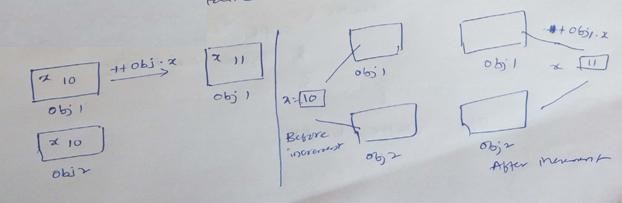 x 10
obj1
++obj.x
x 11
obj1
x 10
obj2
obj1
x=10
Before
increment
obj2
obj1
++obj1.x
x 11
obj2
After increment